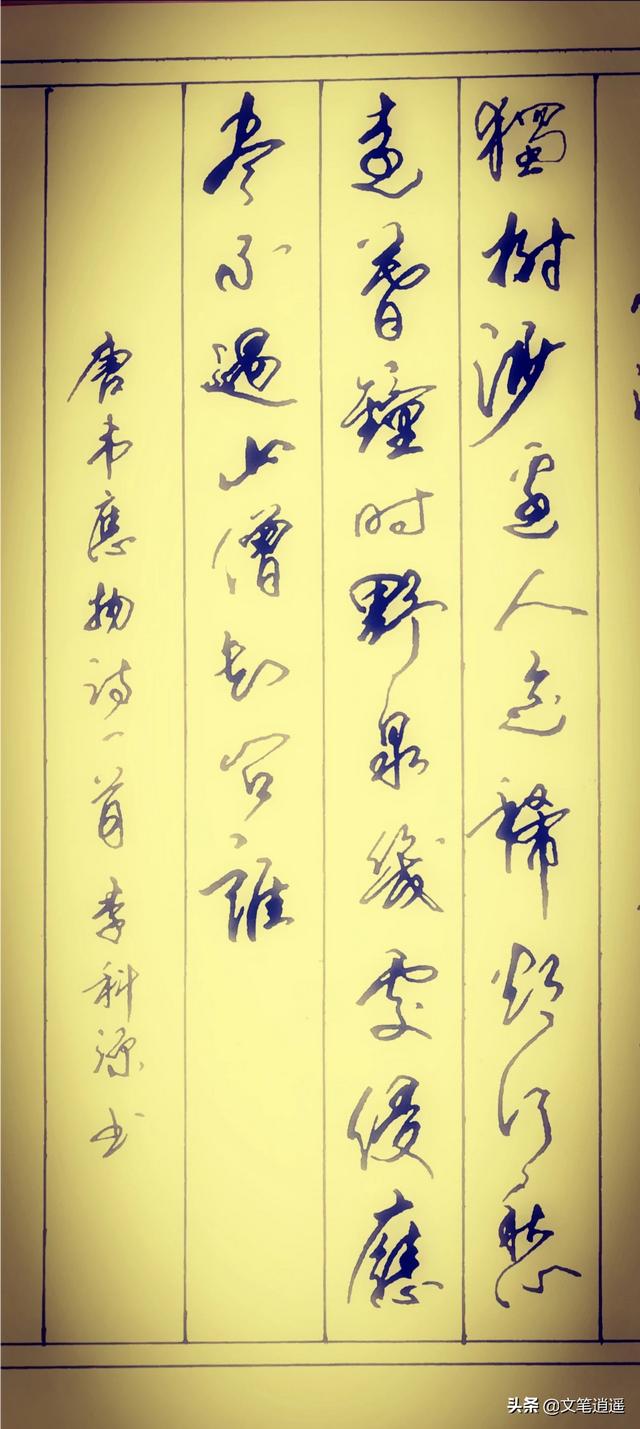 獨樹沙邊人迹稀欲行愁
遠暮鐘時野泉幾處侵應
尽不遇山僧知问誰
唐韦應物诗一首 李科源书
头条 @文笔逍遥